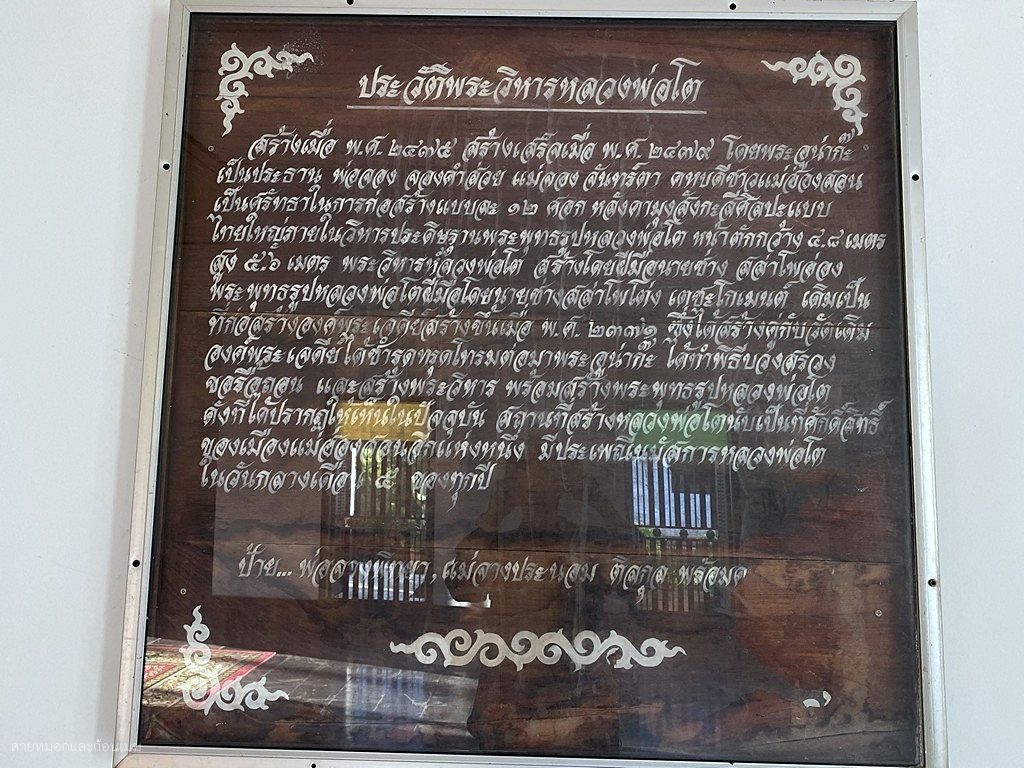 ประวัติพระวิหารหลวงพ่อโต
สร้างเมื่อ พ.ศ. ๒๔๗๕ สร้างเสร็จเมื่อ พ.ศ. ๒๔๗๙ โดยพระอูน่าก๊ะ
เป็นประธาน พ่อลอง จองคำส้วย แม่ลอง จันทร์ตา คหบดีชาวแม่ฮ่องสอน
เป็นศรัทธาในการก่อสร้างแบบละ ๑๒ ศอก หลังคามุงสังกะสีศิลปะแบบ
ไทยใหญ่ภายในวิหารประดิษฐานพระพุทธรูปหลวงพ่อโต หน้าตักกว้าง ๔.๘ เมตร
สูง ๕.๖ เมตร พระวิหารหลวงพ่อโต สร้างโดยฝีมือนายช่าง สล่าโพอ่อง
พระพุทธรูปหลวงพ่อโตฝีมือโดยนายช่างสล่าโพโต่ง เตชะโกเมนต์ เดิมเป็น
ที่ก่อสร้างองค์พระเจดีย์สร้างขึ้นเมื่อ พ.ศ. ๒๓๗๑ ซึ่งได้สร้างคู่กับวัดเดิม
องค์พระเจดีย์ได้ชำรุดทรุดโทรมต่อมาพระอูน่าก๊ะ ได้ทำพิธีบวงสรวง
ขอรื้อถอน และสร้างพระวิหาร พร้อมสร้างพระพุทธรูปหลวงพ่อโต
ดังที่ได้ปรากฏให้เห็นในปัจจุบัน สถานที่สร้างหลวงพ่อโตนับเป็นที่ศักดิ์สิทธิ์
ของเมืองแม่ฮ่องสอนอีกแห่งหนึ่ง มีประเพณีนมัสการหลวงพ่อโต
ในวันกลางเดือน ๕ ของทุกปี
ป้าย... พ่อจางพิทยา, แม่จางประนอม ติสกุล พร้อม
สายหมอกและก้อนเมฆ